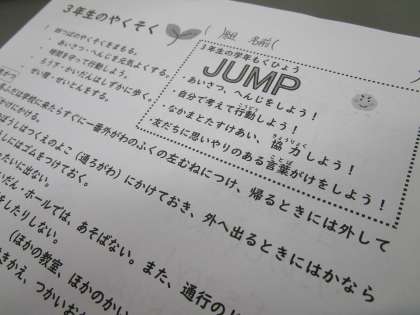 3年生のやくそく
( )組 名前(
・いつばのやくそくをまもる。
・あいさつ・へんじを元気よくする。
・時間を守って行動しよう。
・ろう下・かいだんはしずかに歩く。
・せい理・せいとんをする。
3年生の学年もくひょう
JUMP
・あいさつ、へんじをしよう！
・自分で考えて行動しよう！
・なかまとたすけあい、協力しよう！
・友だちに思いやりのある言葉がけをしよう！
ふだは学校に来たらすぐに一番外がわのふくの左むねにつけ、帰るときには外して
にかける。
ぼうしはつくえのよこ（通ろがわ）にかけておき、外へ出るときにはかなら
うしにはゴムをつけておく。
たいに出ない。
いだん、ホールでは、あそばない。また、通行の
をしたりしない。
(ほかの教室、ほかのかい
きかえ、つかいお